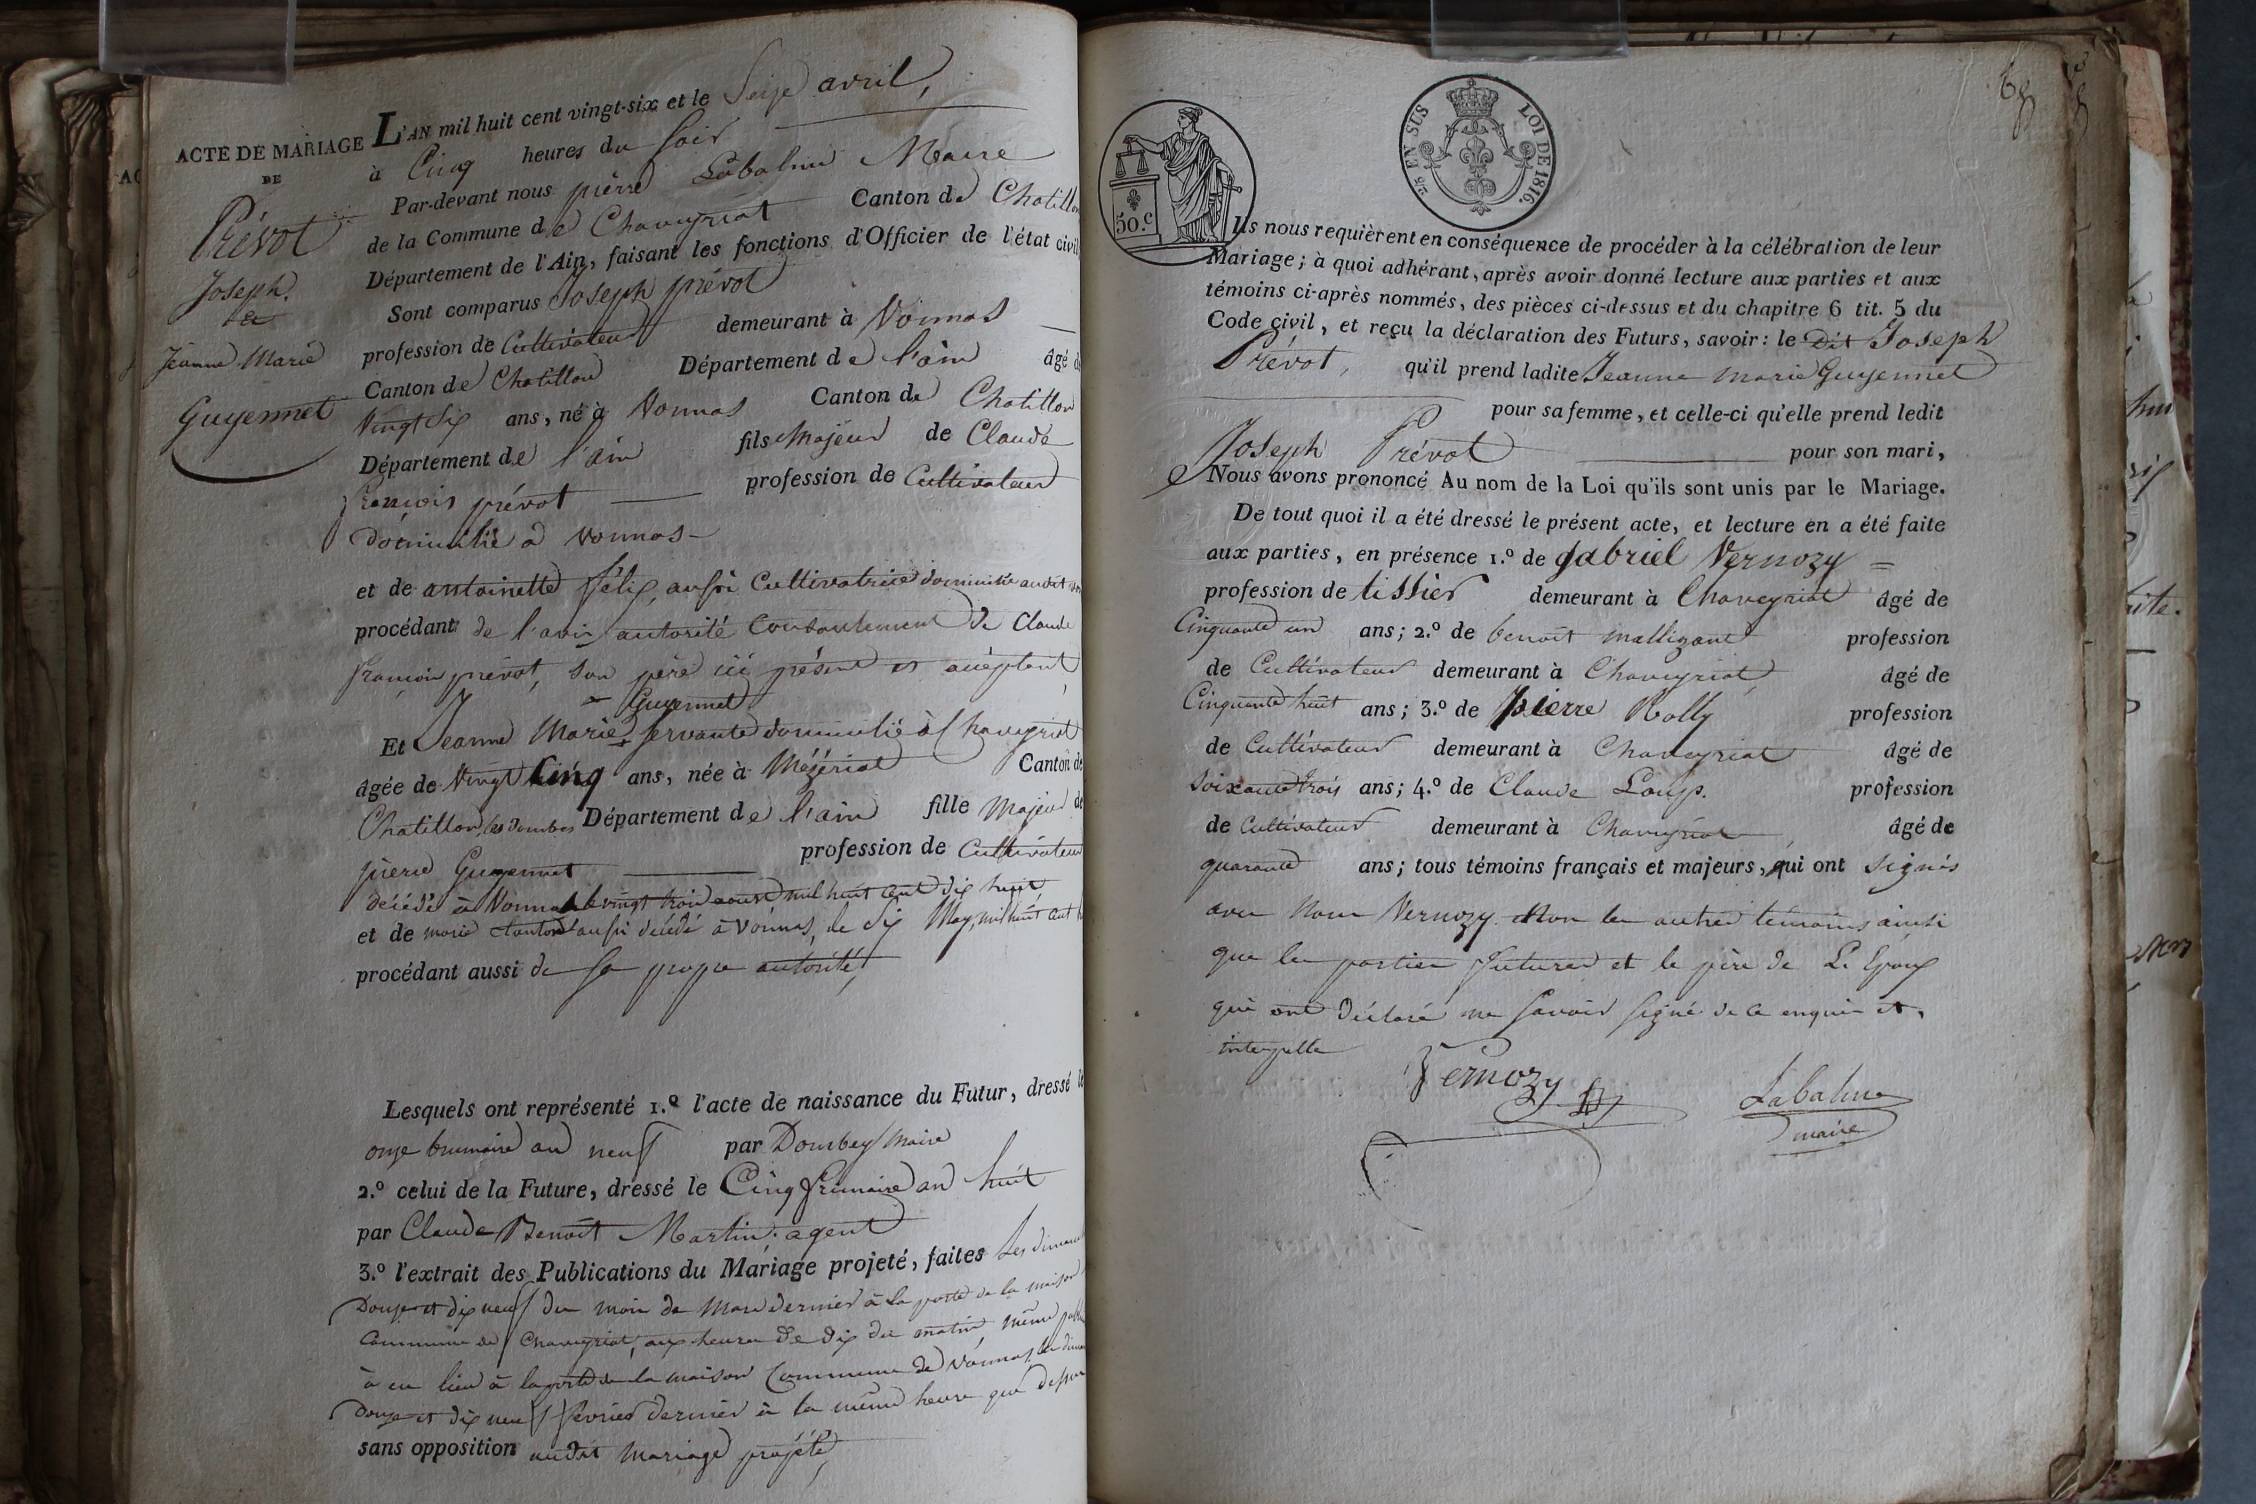 ACTE DE MARIAGE
DE
Prévot
Joseph.
et
Jeanne Marie
Guyennet
L'AN mil huit cent vingt-six et le Seize avril,
à Cinq heures du Soir
Par-devant nous pierre Labalme Maire
de la Commune de Chaveyriat Canton de Chatillon
Département de l'Ain, faisant les fonctions d'Officier de l'état civil
Sont comparus Joseph prévot
profession de Cultivateur demeurant à Vonnas
Canton de Chatillon Département de l'ain âgé de
Vingt Six ans, né à Vonnas Canton de Chatillon
Département de l'ain fils Majeur de Claude
françois prévot profession de Cultivateur
domicilié a vonnas
et de antoinette félix, aussi Cultivatrice domiciliée audit
procédant de l'avis autorité Consentement de Claude
françois prévot, son père ici présent et acceptant,
+ Guyennet
Et Jeanne Marie + servante domicilié à Chaveyriat
âgée de Vingt Cinq ans, née à Mézériat Canton de
Chatillon les dombes Département de l'ain fille Majeur de
pierre Guyennet profession de Cultivateur
décédé à Vonnas le vingt trois aoust mil huit cent dix huit,
et de marie aussi décédé à Vonnas, le dix May, mil huit cent
procédant aussi de sa propre autorité,
Lesquels ont représenté 1.º l'acte de naissance du Futur, dressé le
onze brumaire an neuf par Dombey Maire
2.º celui de la Future, dressé le Cinq frimaire an huit
par Claude Benoit Martin agent
3.º l'extrait des Publications du Mariage projeté, faites Les
Douze et dix neuf du mois de Mars dernier à la porte de la maison
Commune de Chaveyriat, aux heures de dix du matin, même
à eu lieu à la porte de la maison Commune de Vonnas, les
Douze et dix neuf février dernier à la même heure que dessus
sans opposition audit Mariage projété,
50.c
EN SUS
LOI DE 1816.
68
Ils nous requièrent en conséquence de procéder à la célébration de leur
Mariage; à quoi adhérant, après avoir donné lecture aux parties et aux
témoins ci-après nommés, des pièces ci-dessus et du chapitre 6 tit. 5 du
Code civil, et reçu la déclaration des Futurs, savoir: le Dit Joseph
Prévot, qu'il prend ladite Jeanne Marie Guyennet
pour sa femme, et celle-ci qu'elle prend ledit
Joseph Prévot pour son mari,
Nous avons prononcé Au nom de la Loi qu'ils sont unis par le Mariage.
De tout quoi il a été dressé le présent acte, et lecture en a été faite
aux parties, en présence 1.º de gabriel Vernozy
profession de tissier demeurant à Chaveyriat âgé de
Cinquante un ans; 2.º de benoit mallizant profession
de Cultivateur demeurant à Chaveyriat, âgé de
Cinquante huit ans; 3.º de pierre Rolly profession
de Cultivateur demeurant à Chaveyriat âgé de
soixante trois ans; 4.º de Claude Loup. profession
de Cultivateur demeurant à Chaveyriat, âgé de
quarante ans; tous témoins français et majeurs, qui ont signés
avec Nous Vernozy Non les autres témoins ainsi
que les parties futures et le père de L'Epoux
qui ont déclaré ne savoir signé de ce enquis et
interpellé
Vernozy
Labalme
maire